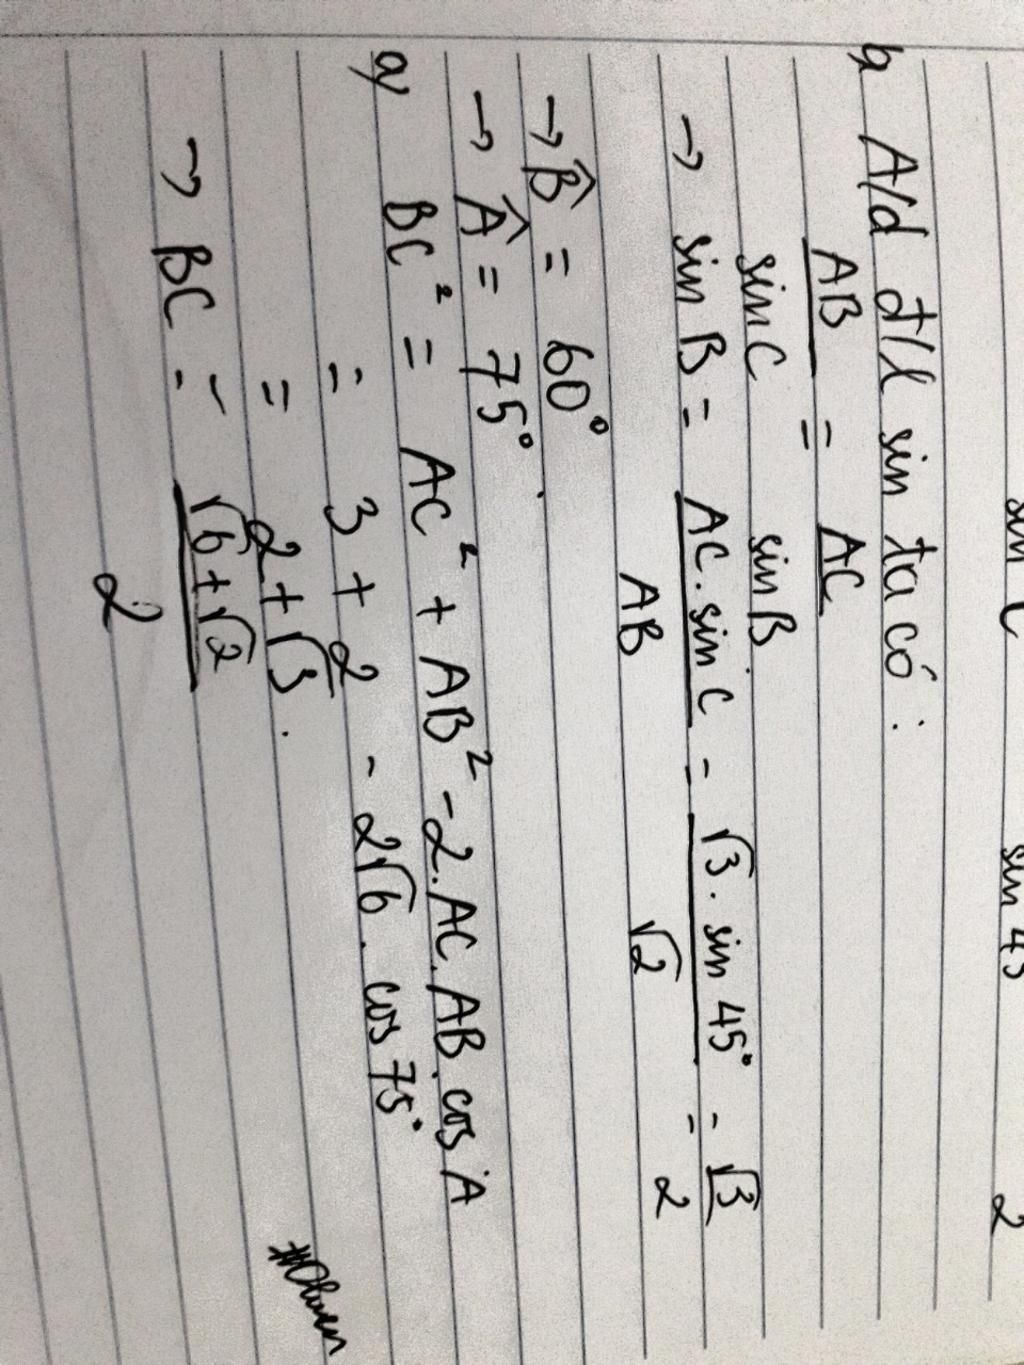 sin C sin 45 2
b, A/d đ/l sin ta có:
AB/sin C = AC/sin B
→ sin B = AC. sin C/AB = √3. sin 45°/√2 = √3/2
→ B̂ = 60°.
→ Â = 75°
a, BC² = AC² + AB² - 2.AC.AB.cos A
= 3 + 2 - 2√6. cos 75°
= 2 + √3.
→ BC = √6+√2/2